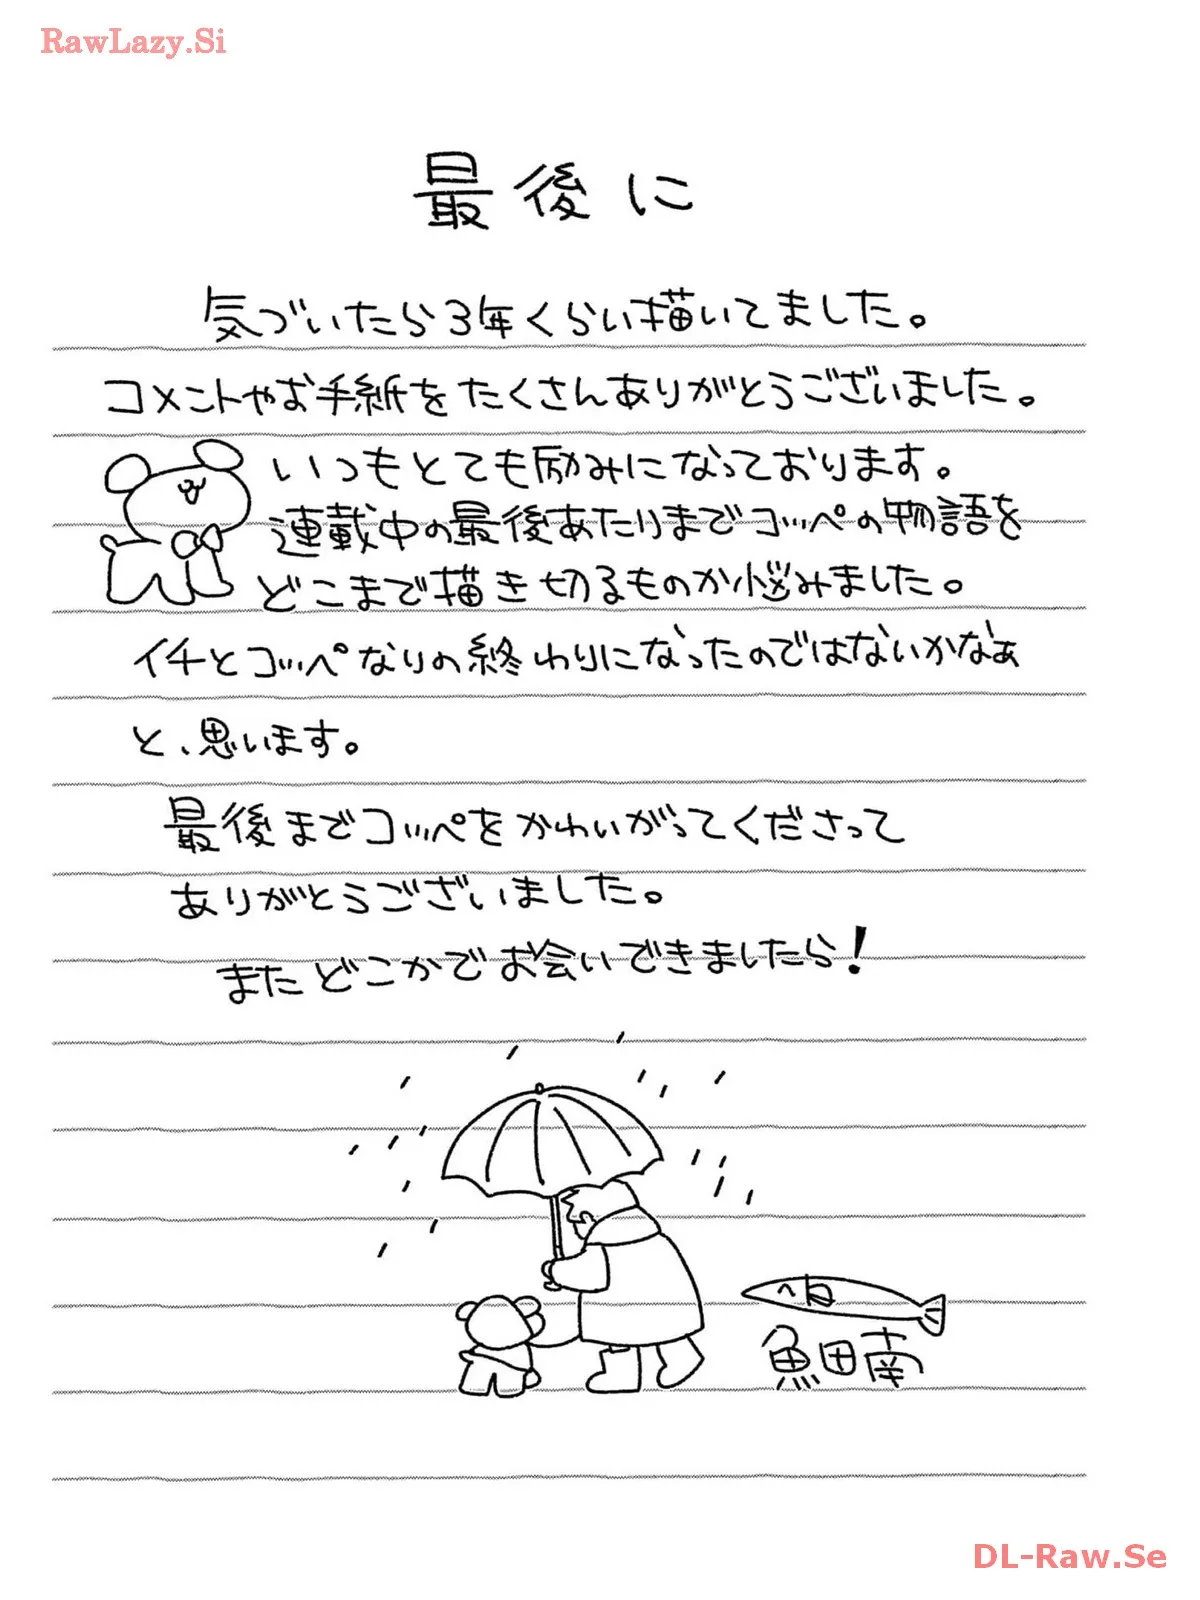 RawLazy.Si
最後に
気づいたら3年くらい描いてました。
コメントやお手紙をたくさんありがとうございました。
いつもとても励みになっております。
連載中の最後あたりまでコッペの物語を
どこまで描き切るものか悩みました。
イチとコッペなりの終わりになったのではないかなぁ
と、思います。
最後までコッペをかわいがってくださって
ありがとうございました。
またどこかでお会いできましたら!
魚田南
DL-Raw.Se